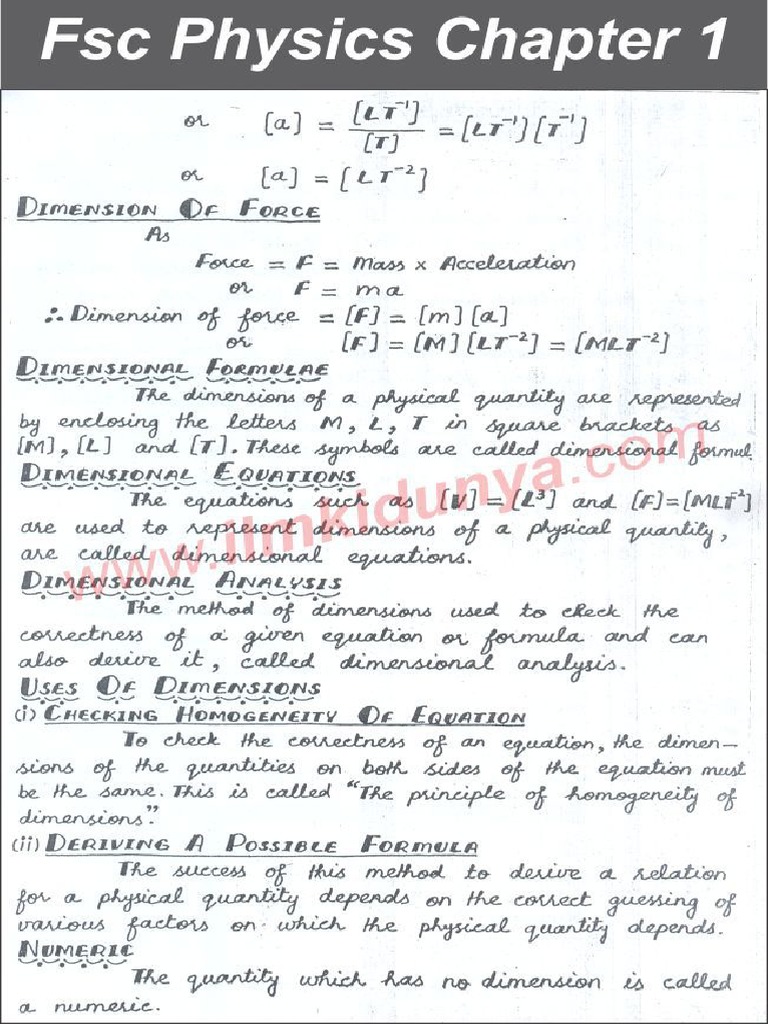 Fsc Physics Chapter 1
or [a] = [LT⁻¹] / [T] = [LT⁻¹] [T⁻¹]
or [a] = [LT⁻²]
DIMENSION OF FORCE
As
Force = F = Mass x Acceleration
or F = ma
∴ Dimension of force = [F] = [m] [a]
or [F] = [M] [LT⁻²] = [MLT⁻²]
DIMENSIONAL FORMULAE
The dimensions of a physical quantity are represented
by enclosing the letters M, L, T in square brackets as
[M], [L] and [T]. These symbols are called dimensional formul
DIMENSIONAL EQUATIONS
The equations such as [V] = [L³] and [F]=[MLT⁻²]
are used to represent dimensions of a physical quantity,
are called dimensional equations.
DIMENSIONAL ANALYSIS
The method of dimensions used to check the
correctness of a given equation or formula and can
also derive it, called dimensional analysis.
USES OF DIMENSIONS
(i) CHECKING HOMOGENEITY OF EQUATION
To check the correctness of an equation, the dimen-
sions of the quantities on both sides of the equation must
be the same. This is called "The principle of homogeneity of
dimensions".
(ii) DERIVING A POSSIBLE FORMULA
The success of this method to derive a relation
for a physical quantity depends on the correct guessing of
various factors on which the physical quantity depends.
NUMERIC
The quantity which has no dimension is called
a numeric.
www.ilmkidunya.com